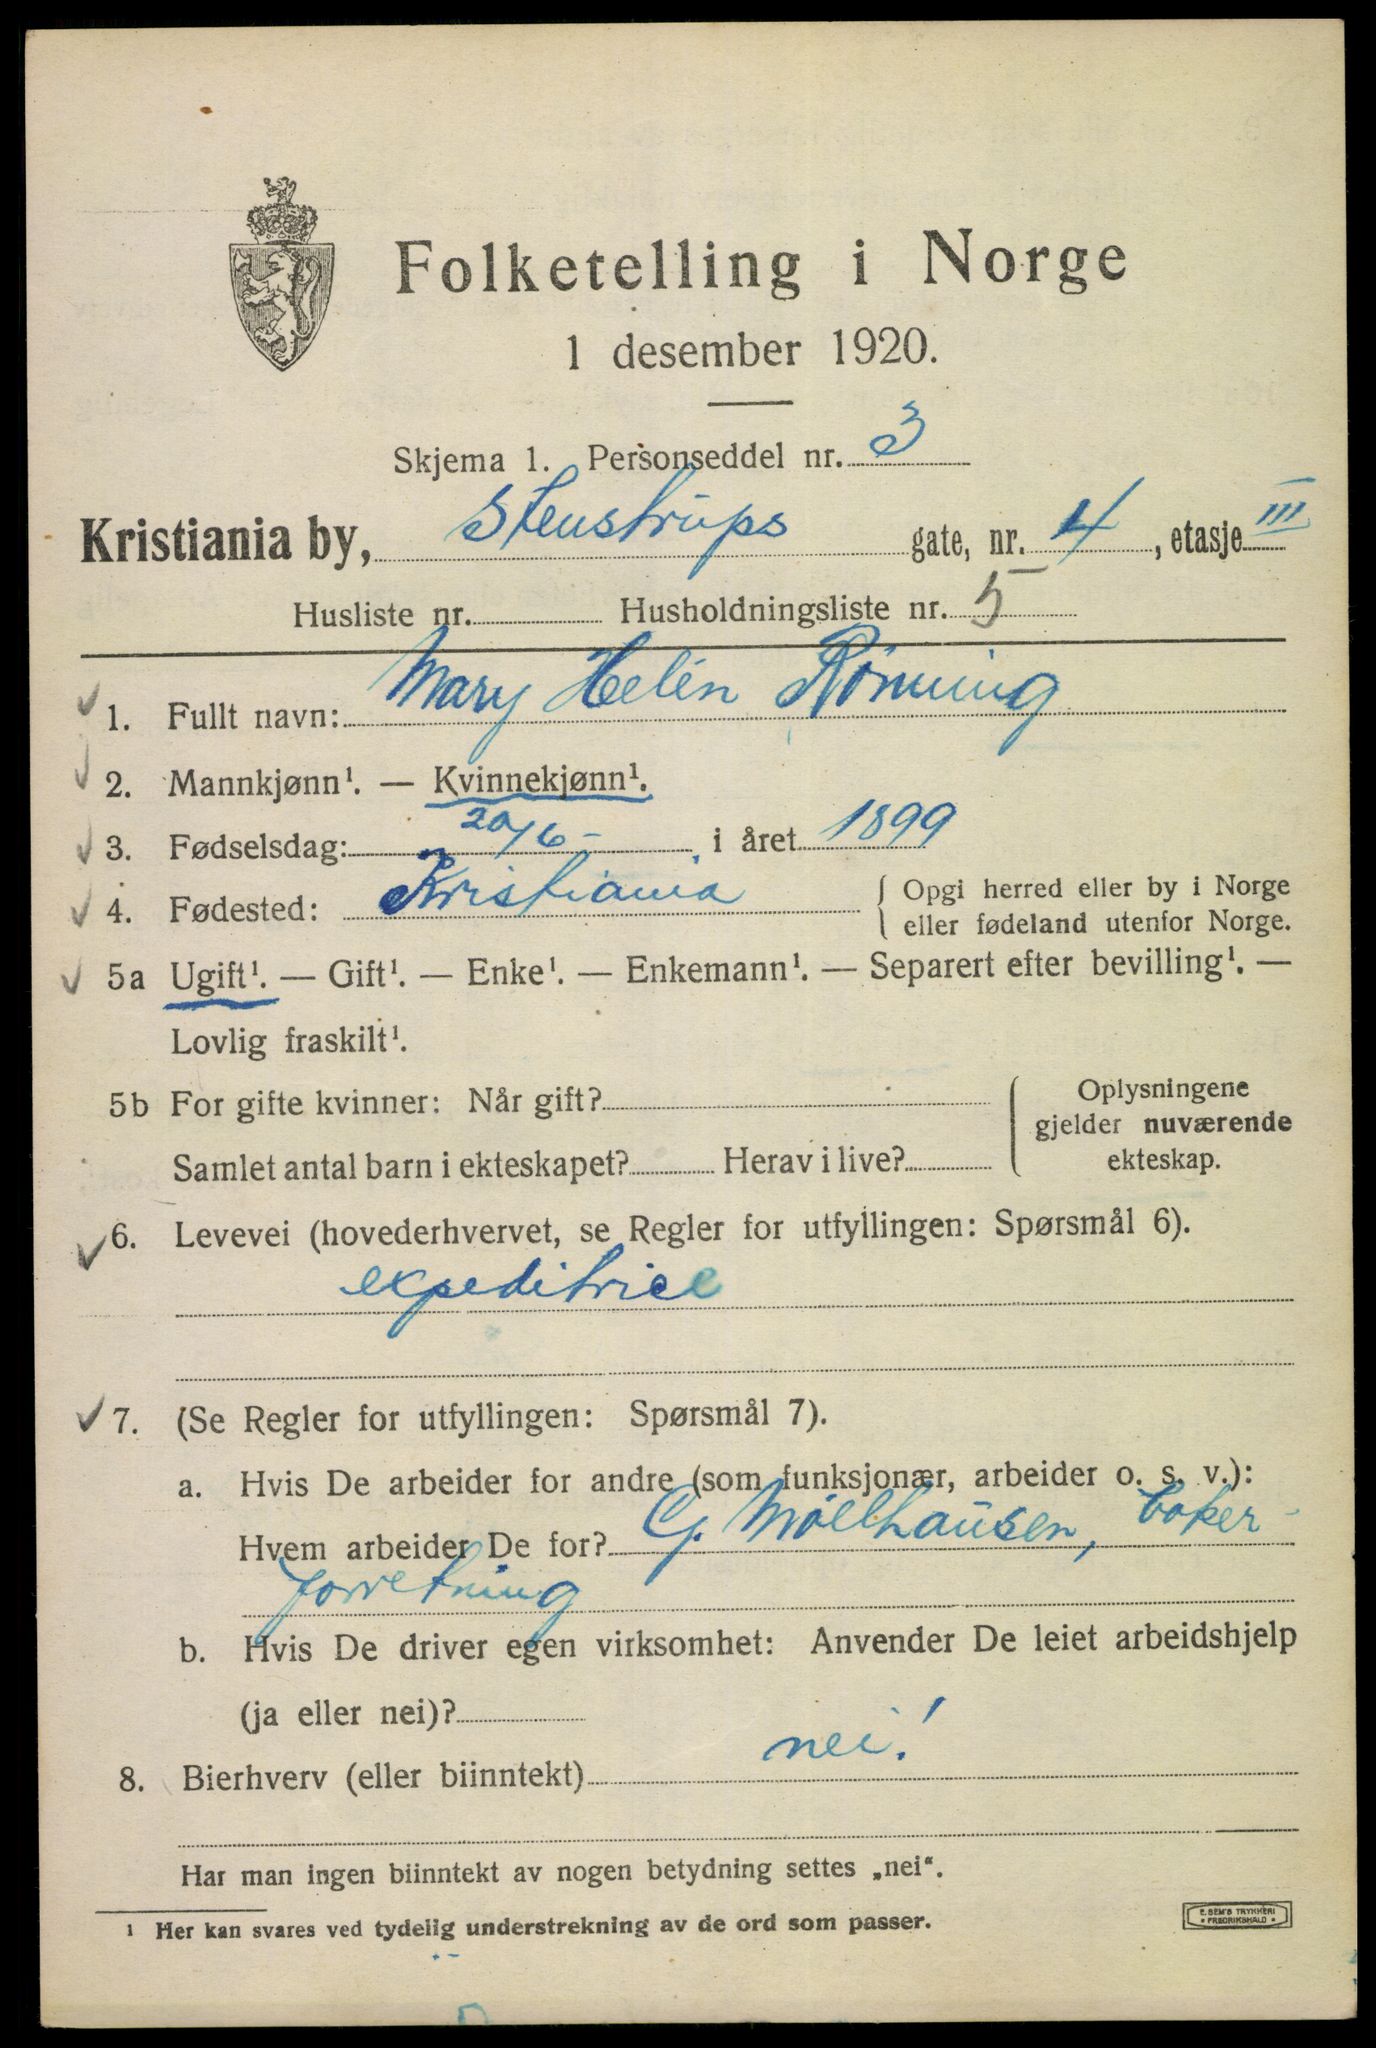 Folketelling i Norge
1 desember 1920.
Skjema 1. Personseddel nr. 3
Kristiania by, Stenstrups gate, nr. 4, etasje III
Husliste nr. Husholdningsliste nr. 5
1. Fullt navn: Mary Helén Rönning
2. Mannkjønn¹. — Kvinnekjønn¹.
3. Fødselsdag: 20/6 - i året 1899
4. Fødested: Kristiania { Opgi herred eller by i Norge
eller fødeland utenfor Norge.
5a Ugift¹. — Gift¹. — Enke¹. — Enkemann¹. — Separert efter bevilling¹. —
Lovlig fraskilt¹.
5b For gifte kvinner: Når gift? { Oplysningene
gjelder nuværende
Samlet antal barn i ekteskapet? Herav i live? ekteskap.
6. Levevei (hovederhvervet, se Regler for utfyllingen: Spørsmål 6).
expeditrice
7. (Se Regler for utfyllingen: Spørsmål 7).
a. Hvis De arbeider for andre (som funksjonær, arbeider o. s. v.):
Hvem arbeider De for? G. Möllhausen, baker-
forretning
b. Hvis De driver egen virksomhet: Anvender De leiet arbeidshjelp
(ja eller nei)?
8. Bierhverv (eller biinntekt) nei!
Har man ingen biinntekt av nogen betydning settes „nei“.
¹ Her kan svares ved tydelig understrekning av de ord som passer.
E. SEM'S TRYKKERI
• FREDRIKSHALD •